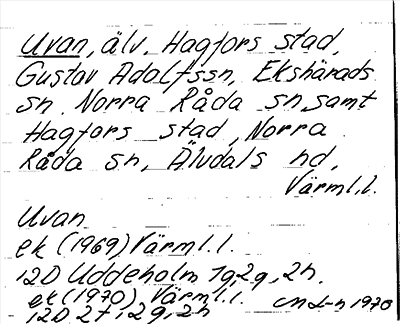 Uvan, älv, Hagfors stad,
Gustav Adolfssn, Ekshärads
sn Norra Råda sn, samt
Hagfors stad, Norra
Råda sn, Älvdals hd,
Värml.l.
Uvan
ek (1969) Värml.l.
12D Uddeholm 1g,2g,2h.
ek (1970) Värml.l.
12D 2f, 2g, 2h
1970